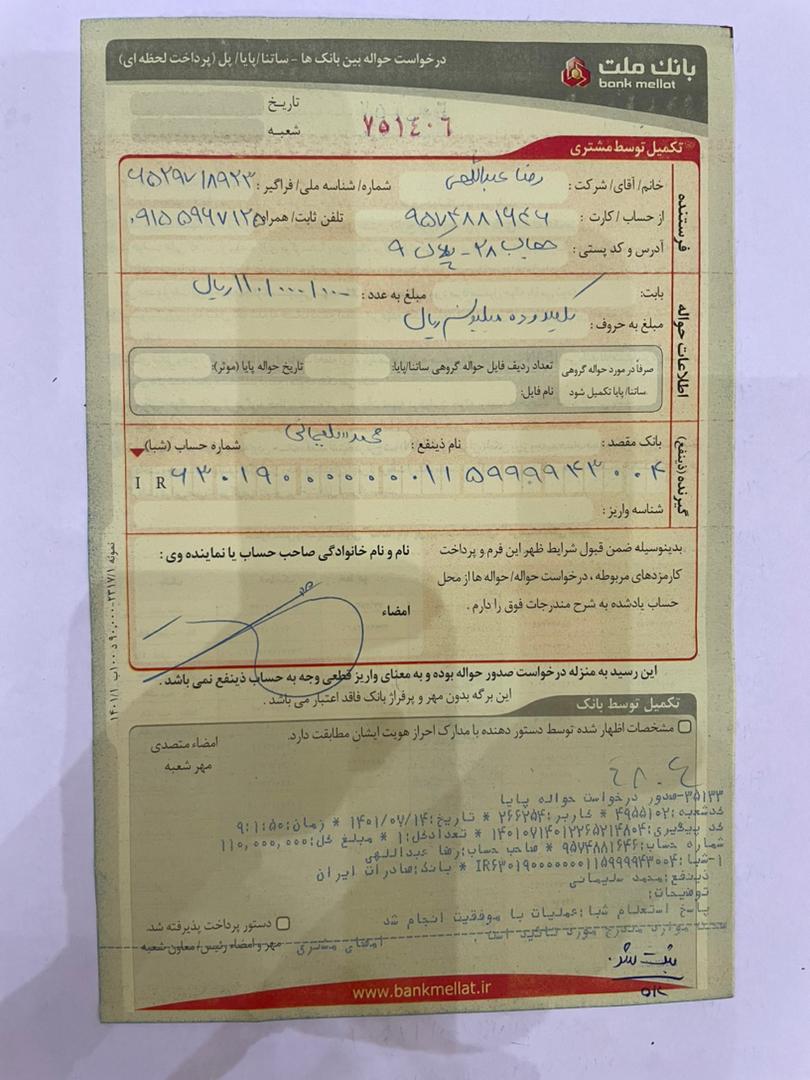 بانك ملت
bank mellat
درخواست حواله بین بانک ها - ساتنا/پایا/ پل (پرداخت لحظه ای)
تاریخ
شعبه
۷۵۱۴۰۶
تکمیل توسط مشتری
فرستنده
خانم/ آقای/ شرکت : رضا عبداللهی شماره/ شناسه ملی/ فراگیر :
از حساب /کارت : ۹۵۷۴۸۸۱۶۴۶ تلفن ثابت/ همراه:
آدرس و کد پستی : ۲۸ - پلاک ۹
اطلاعات حواله
بابت: مبلغ به عدد : ۱۱۰/۰۰۰/۰۰۰ ریال
مبلغ به حروف : یکصد و ده میلیون ریال
صرفاً در مورد حواله گروهی ساتنا/ پایا تکمیل شود
تعداد ردیف فایل حواله گروهی ساتنا/پایا: تاریخ حواله پایا (موثر):
نام فایل:
گیرنده (ذینفع)
بانک مقصد : نام ذینفع : محمد سلیمانی شماره حساب (شبا)
IR ۶۳۰۱۹۰۰۰۰۰۰۰۱۱۵۹۹۹۹۴۳۰۰۴
شناسه واریز :
بدینوسیله ضمن قبول شرایط ظهر این فرم و پرداخت
کارمزدهای مربوطه ، درخواست حواله/ حواله ها از محل
حساب یادشده به شرح مندرجات فوق را دارم .
نام و نام خانوادگی صاحب حساب یا نماینده وی :
امضاء
این رسید به منزله درخواست صدور حواله بوده و به معنای واریز قطعی وجه به حساب ذینفع نمی باشد .
این برگه بدون مهر و پرفراژ بانک فاقد اعتبار می باشد .
تکمیل توسط بانک
مشخصات اظهار شده توسط دستور دهنده با مدارک احراز هویت ایشان مطابقت دارد.
امضاء متصدی
مهر شعبه
۳۵۱۳۳-صدور درخواست حواله پایا
کدشعبه:۴۹۵۵۱۰۲ * کاربر:۲۶۶۲۵۴ * تاریخ:۱۴۰۱/۰۷/۱۴ * زمان:۹:۱:۵۰
کد پیگیری:۱۴۰۱۰۷۱۴۰۱۲۲۶۵۲۱۴۸۰۴ * تعدادکل:۱ * مبلغ کل:۱۱۰,۰۰۰,۰۰۰
شماره حساب:۹۵۷۴۸۸۱۶۴۶ * صاحب حساب:رضا عبداللهی
۱-شبا:IR۶۳۰۱۹۰۰۰۰۰۰۰۱۱۵۹۹۹۹۴۳۰۰۴ * بانک:صادرات ایران
ذینفع:محمد سلیمانی
توضیحات:
پاسخ استعلام شبا:عملیات با موفقیت انجام شد
امضای مشتری
دستور پرداخت پذیرفته شد.
مهر و امضاء رئیس/ معاون شعبه
ثبت شد.
www.bankmellat.ir